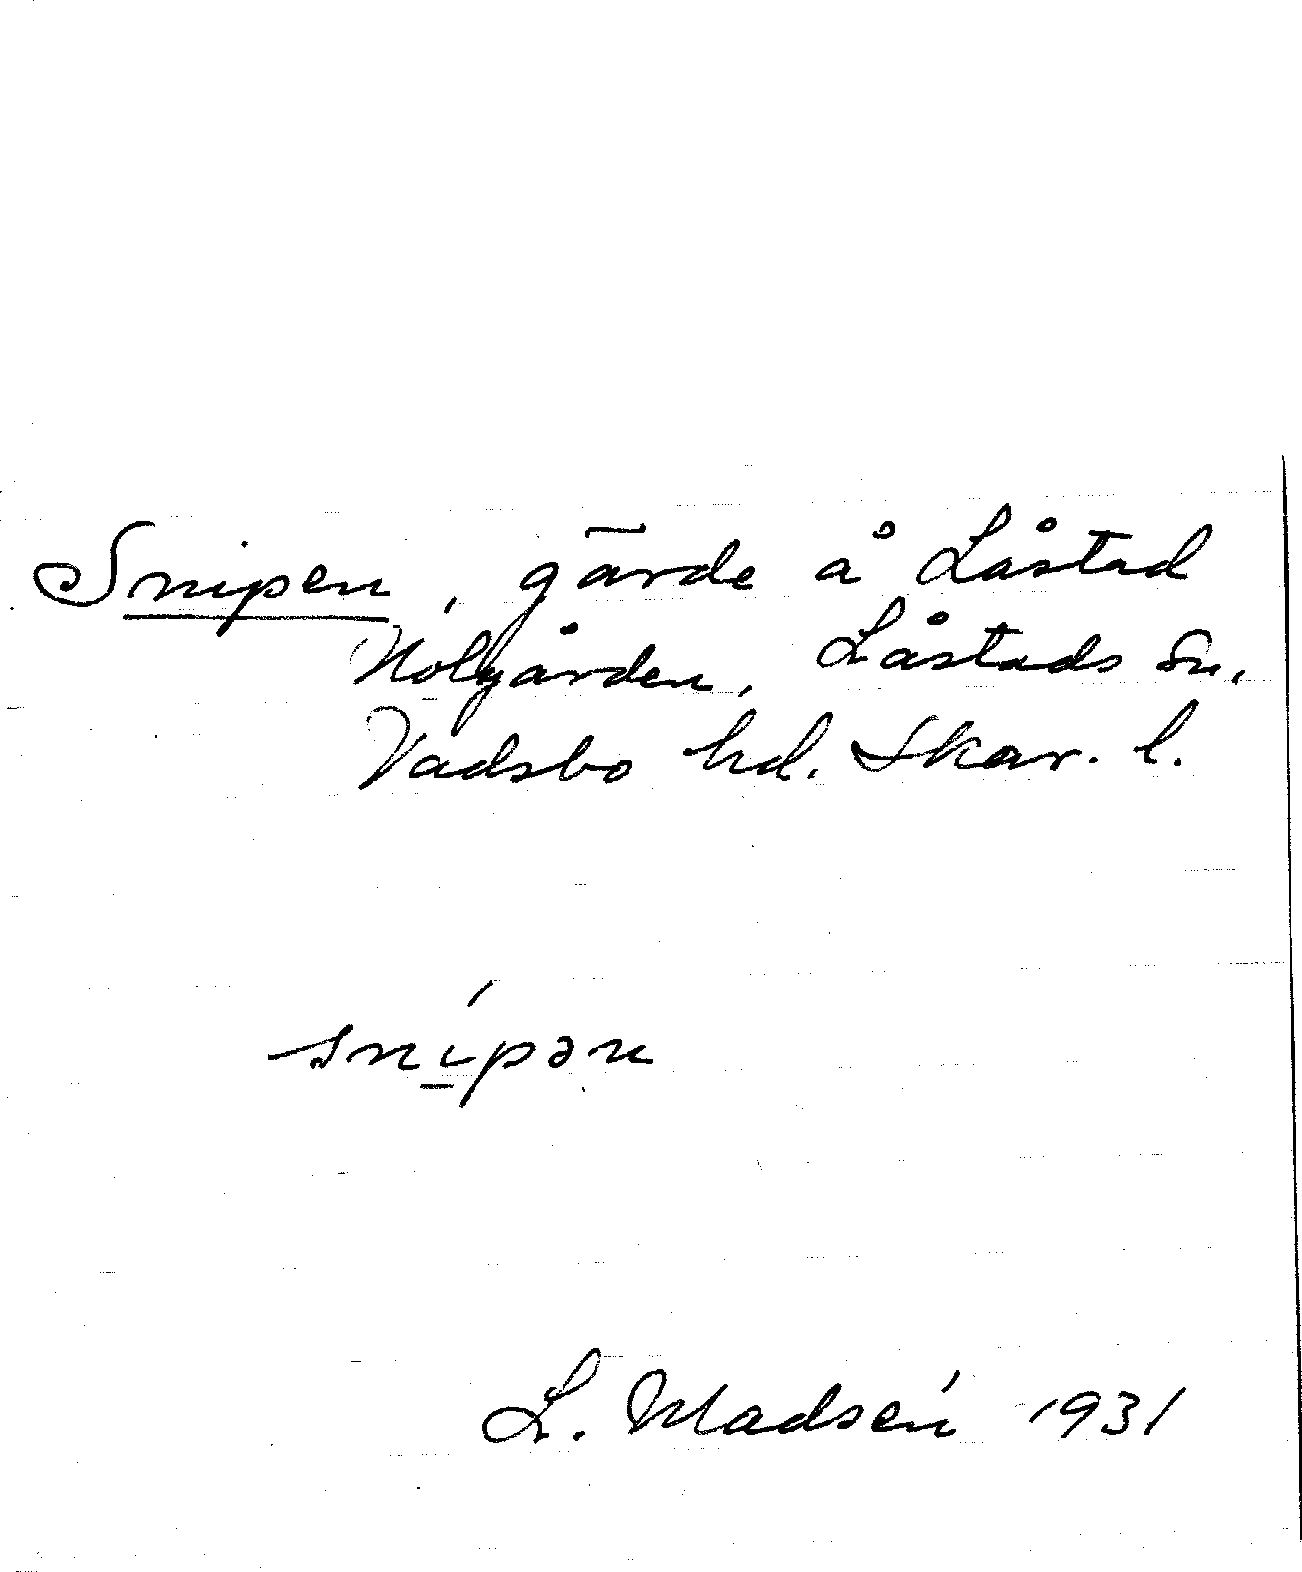 Snipen, gärde å Låstad
Nolgården, Låstads sn.
Vadsbo hd. Skar. l.
snípən
L. Madsén 1931